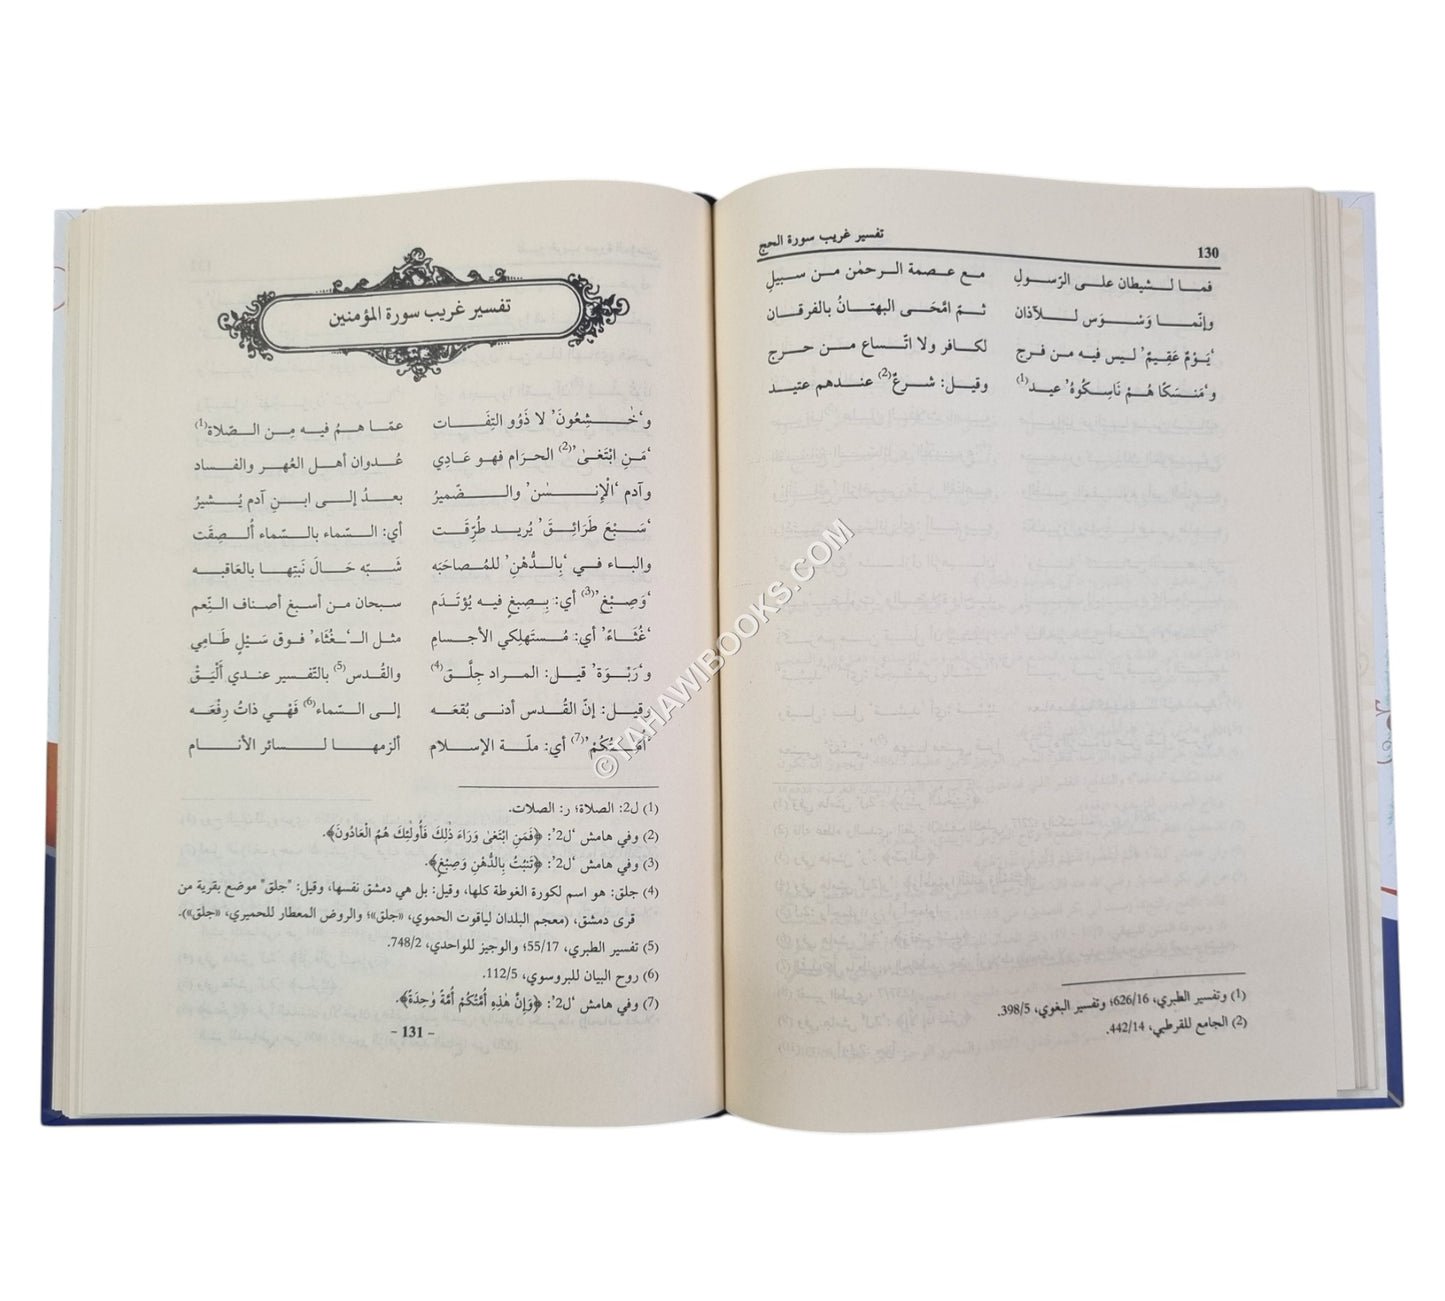 130
تفسير غريب سورة الحج
فمـا لـشيطان على الرّسولِ مـع عـصمة الـرحمٰن مـن سبيلِ
وإنّمـا وَسْوَس لـلآذان ثـمّ امْحَى البهتـانُ بالفرقان
‘يَـوْمٌ عَقِيمٌ’ ليس فيه من فرج لكافر ولا اتّساع مـن حـرج
و‘مَنسَكًا هُمْ نَاسِكُوهُ’ عيد(1) وقيل: شـرعٌ(2) عندهم عتيد
(1) وتفسير الطبري، 626/16؛ وتفسير البغوي، 398/5.
(2) الجامع للقرطبي، 442/14.
تفسير غريب سورة المؤمنين
و‘خٰـشِعُونَ’ لا ذَوُو التِفَـات عمّـا هـمُ فيه مِـن الـصّلاة(1)
‘مَنِ ابْتَغىٰ’(2) الحرام فهو عَـادِي عُـدوان أهـل العُهـر والفـساد
وآدم ‘الْإِنـسٰن’ والـضّميرُ بعـدُ إلـى ابـنِ آدم يُـشيرُ
‘سَـبْعَ طَرَائِـقَ’ يُريـد طُرِّقَـت أي: السّماء بالسّماء أُلـصِقَت
والباء فـي ‘بِالـدُّهْنِ’ للمُـصاحَبَه شَـبّه حَـالَ نَبتِهـا بالعَاقبـه
‘وَصِبْغ’(3) أي: بِـصِبغٍ فيه يُؤتَـدَم سبحان من أسبغ أصناف الـنِّعم
‘غُثَـاءً’ أي: مُـستَهلِكي الأجسـامِ مثـل الـ‘ـغُثَاء’ فوق سَـيْلٍ طَـامِي
و‘رَبْـوَة’ قيـل: المـراد جِلَّـق(4) والقُدس(5) بالتّفسير عندي أَلْيَـقْ
وقيـل: إنّ القُـدس أدنـى بُقعَـه إلى السّماء(6) فَهْي ذاتُ رِفْعَـه
‘أُمَّـتُكُمْ’(7) أي: ملّـة الإسـلام ألزمهـا لـسائر الأنـام
(1) ل2: الصلاة؛ ر: الصلات.
(2) وفي هامش ‘ل2’: ﴿فَمَنِ ابْتَغىٰ وَرَاءَ ذٰلِكَ فَأُولٰئِكَ هُمُ الْعَادُونَ﴾.
(3) وفي هامش ‘ل2’: ﴿تَنبُتُ بِالدُّهْنِ وَصِبْغٍ﴾.
(4) جلق: هو اسم لكورة الغوطة كلها، وقيل: بل هي دمشق نفسها، وقيل: "جلق" موضع بقرية من
قرى دمشق، (معجم البلدان لياقوت الحموي، «جلق»؛ والروض المعطار للحميري، «جلق»).
(5) تفسير الطبري، 55/17؛ والوجيز للواحدي، 748/2.
(6) روح البيان للبروسوي، 112/5.
(7) وفي هامش ‘ل2’: ﴿وَإِنَّ هٰذِهِ أُمَّتُكُمْ أُمَّةً وٰحِدَةً﴾.
- 131 -
©TAHAWIBOOKS.COM